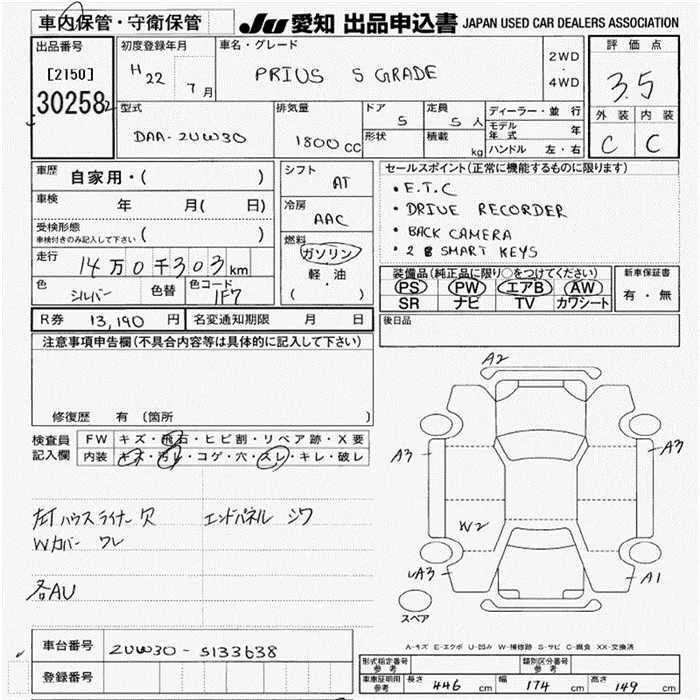 車内保管・守衛保管 JU 愛知 出品申込書 JAPAN USED CAR DEALERS ASSOCIATION
出品番号
[2150]
30258
初度登録年月
H 22 7 月
車名・グレード
PRIUS S GRADE
2WD
・
4WD
評価点
3.5
外装 内装
C C
型式
DAA-ZUW30
排気量
1800 CC
ドア
5
形状
定員
5 人
積載
kg
ディーラー・並行
モデル年式 年
ハンドル 左・右
車歴 自家用・( )
車検 年 月( 日)
受検形態
車検付きのみ記入して下さい ( )
走行 14万0千303km
色 シルバー 色替 色コード 1F7
シフト
AT
冷房
AAC
燃料
ガソリン
軽・油
( ・ )
セールスポイント(正常に機能するものに限ります)
・E.T.C
・DRIVE RECORDER
・BACK CAMERA
・2 SMART KEYS
装備品(純正品に限り○をつけてください)
PS PW エアB AW
SR ナビ TV カワシート
新車保証書
有・無
R券 13,190 円 名変通知期限 月 日
後日品
注意事項申告欄(不具合内容等は具体的に記入して下さい)
修復歴 有 (箇所
検査員
記入欄
FW キズ・飛石・ヒビ割・リペア跡・X要
内装 キズ・汚レ・コゲ・穴・スレ・キレ・破レ
左T ハウスライナー 欠 エンドパネル シワ
Wカバー ワレ
各AU
A2
A3
A3
W2
UA3
A1
スペア
A-キズ E-エクボ U-凹み W-補修跡 S-サビ C-腐食 XX-交換済
車台番号 ZUW30-5133638
登録番号
形式指定番号
参考
類別区分番号
参考
車庫証明用
参考
長さ 446 cm 幅 174 cm 高さ 149 cm